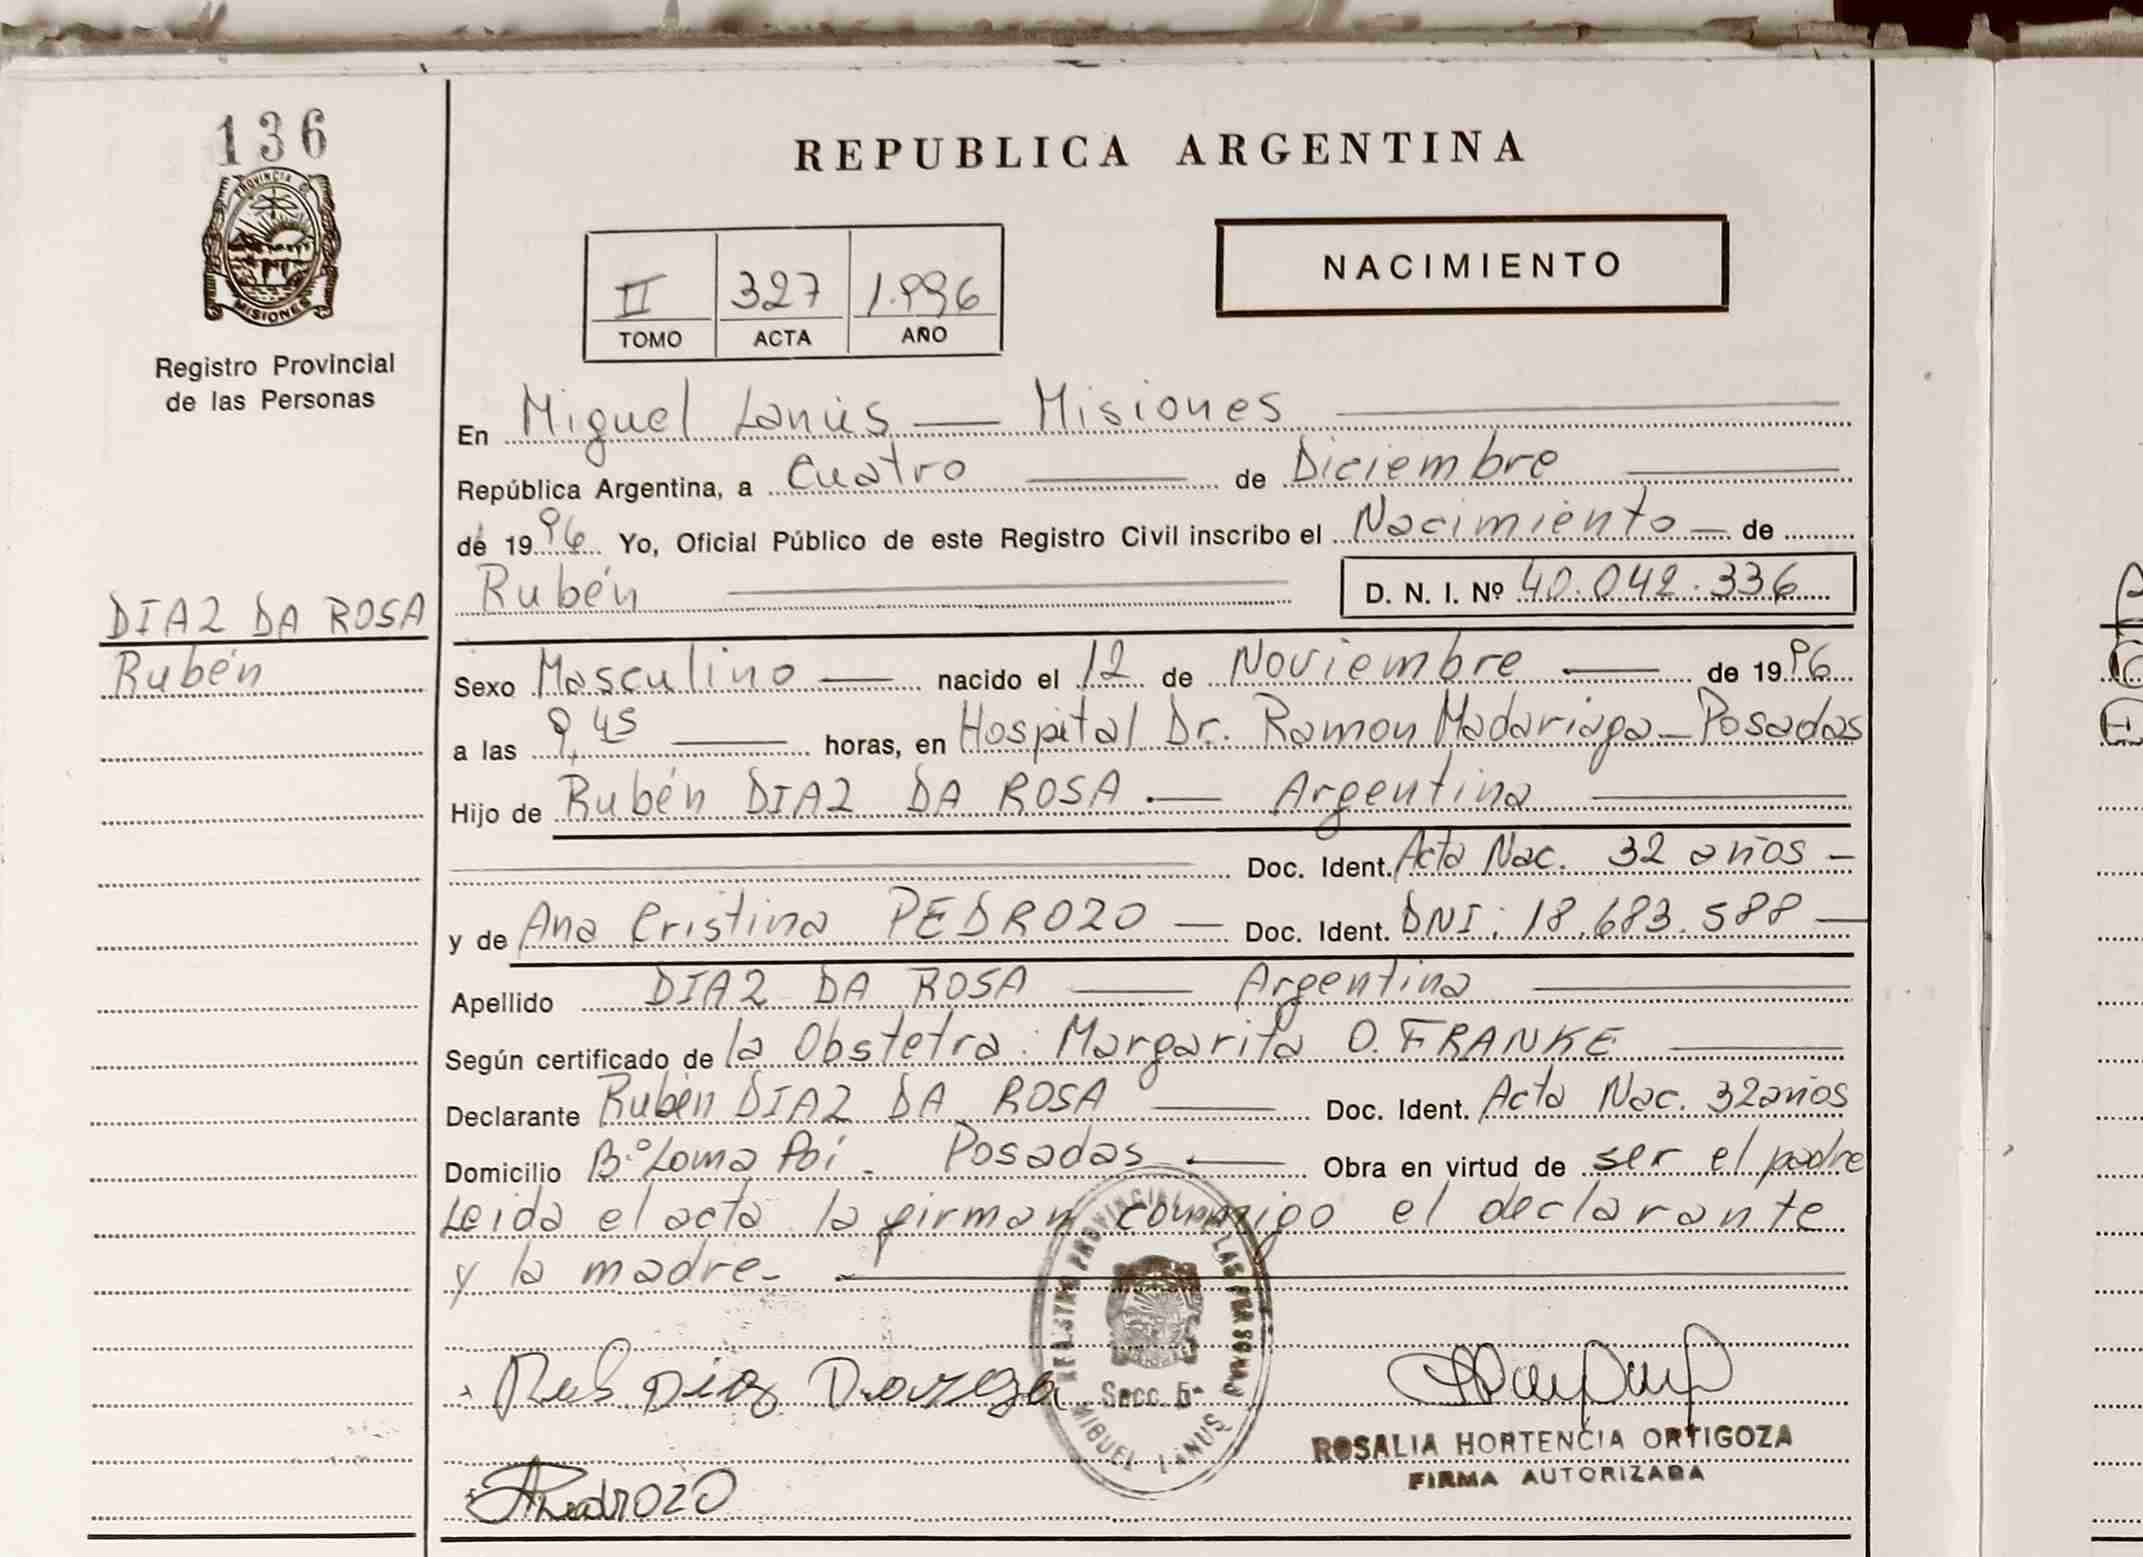 136
PROVINCIA DE
MISIONES
Registro Provincial
de las Personas
DIAZ DA ROSA
Rubén
REPUBLICA ARGENTINA
NACIMIENTO
II 327 1.996
TOMO ACTA AÑO
En Miguel Lanús — Misiones
República Argentina, a Cuatro de Diciembre
de 1996 Yo, Oficial Público de este Registro Civil inscribo el Nacimiento — de
Rubén D. N. I. Nº 40.042.336
Sexo Masculino — nacido el 12 de Noviembre — de 1996
a las 9,45 — horas, en Hospital Dr. Ramon Madariaga — Posadas
Hijo de Rubén DIAZ DA ROSA. — Argentina
Doc. Ident. Acta Nac. 32 años —
y de Ana Cristina PEDROZO — Doc. Ident. DNI: 18.683.588 —
Apellido DIAZ DA ROSA — Argentina
Según certificado de la Obstetra: Margarita O. FRANKE
Declarante Rubén DIAZ DA ROSA — Doc. Ident. Acta Nac. 32 años
Domicilio B.º Loma Poí - Posadas. — Obra en virtud de ser el padre
Leida el acta la firman conmigo el declarante
y la madre.-
REGISTRO PROVINCIAL DE LAS PERSONAS
Secc. 5ª
MIGUEL LANUS
Rub Diaz
APedrozo
ROSALIA HORTENCIA ORTIGOZA
FIRMA AUTORIZADA